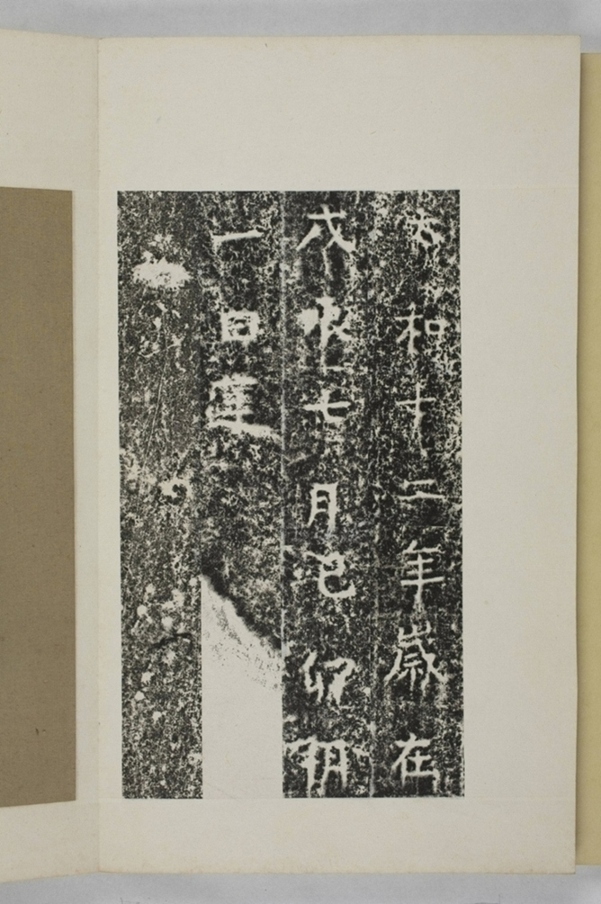 太和十二年歲在
戊辰七月己卯朔
一日建